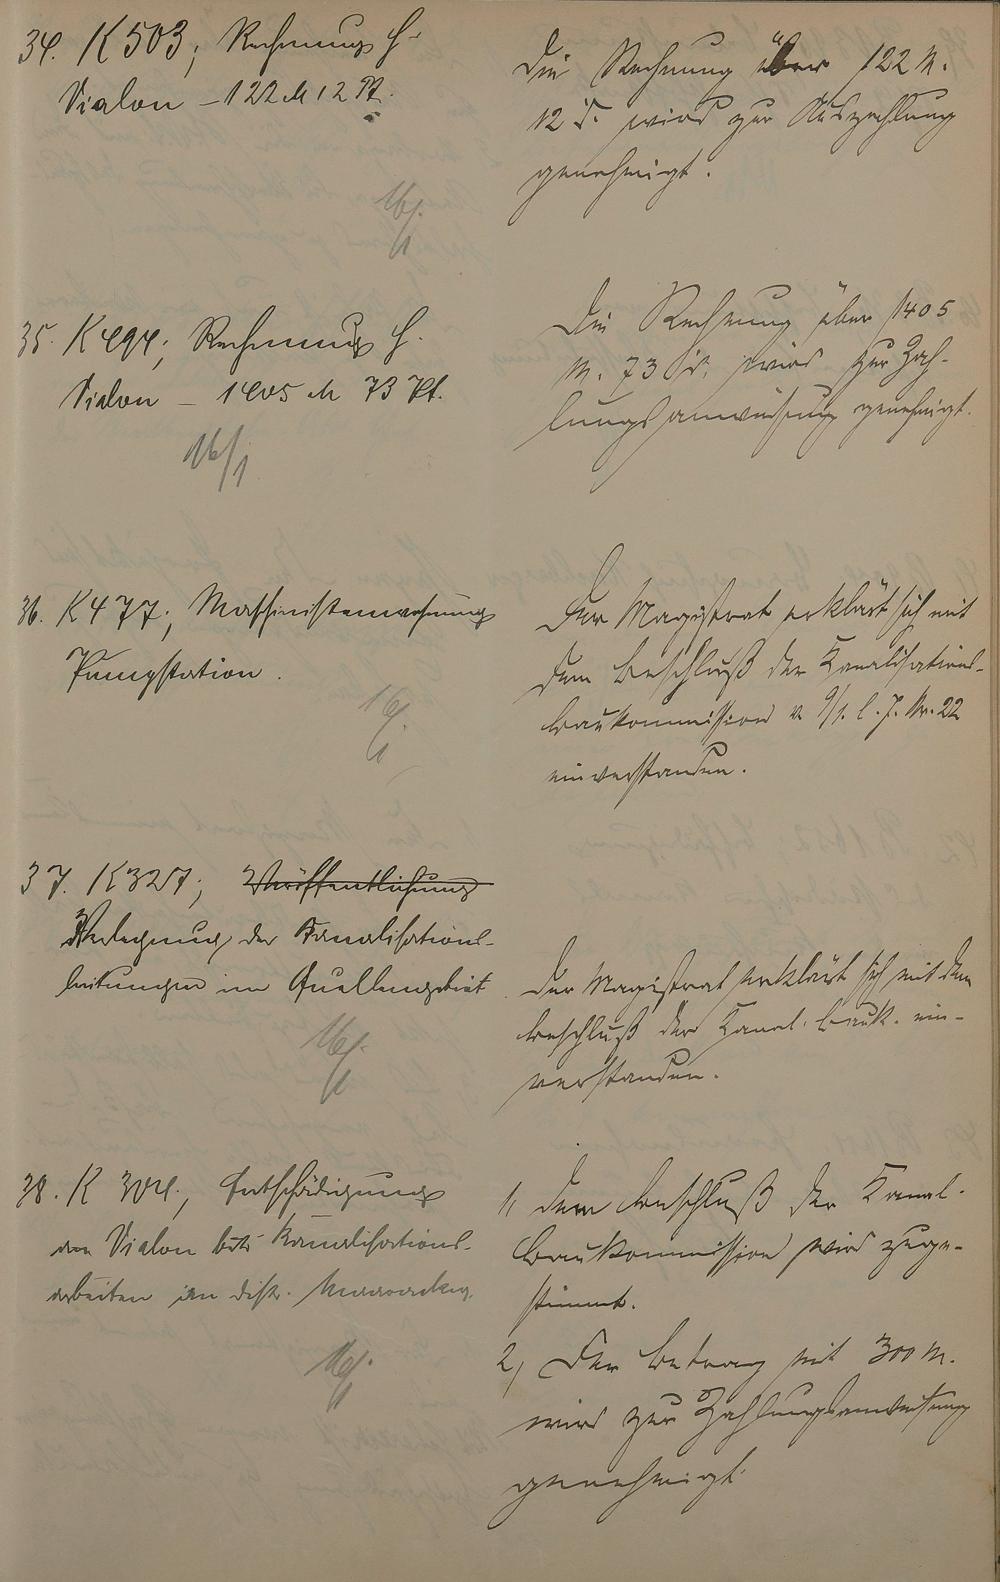 34. K 503; Rechnung H.
Vialon – 122 M 12 Pf.
16/1
Die Rechnung über 122 M.
12 d. wird zur Auszahlung
genehmigt.
35. K 494; Rechnung H.
Vialon – 1405 M 73 Pf.
16/1
Die Rechnung über 1405
M. 73 d. wird zur Zah-
lungsanweisung genehmigt.
36. K 477; Maschinistenwohnung
Pumpstation.
16/1
Der Magistrat erklärt sich mit
dem Beschluß der Kanalisations-
baukommission v. 9/1. l. J. Nr. 22
einverstanden.
37. K 327; Veröffentlichung
Verlegung der Kanalisations-
leitungen im Quellengebiet
16/1
Der Magistrat erklärt sich mit dem
Beschluß der Kanal. bauk. ein-
verstanden.
38. K 304; Entschädigung
an Vialon Kanalisations-
arbeiten im Distr.
16/1
1, Dem Beschluß der Kanal-
baukommission wird zuge-
stimmt.
2, Der Betrag mit 300 M.
wird zur Zahlungsanweisung
genehmigt.